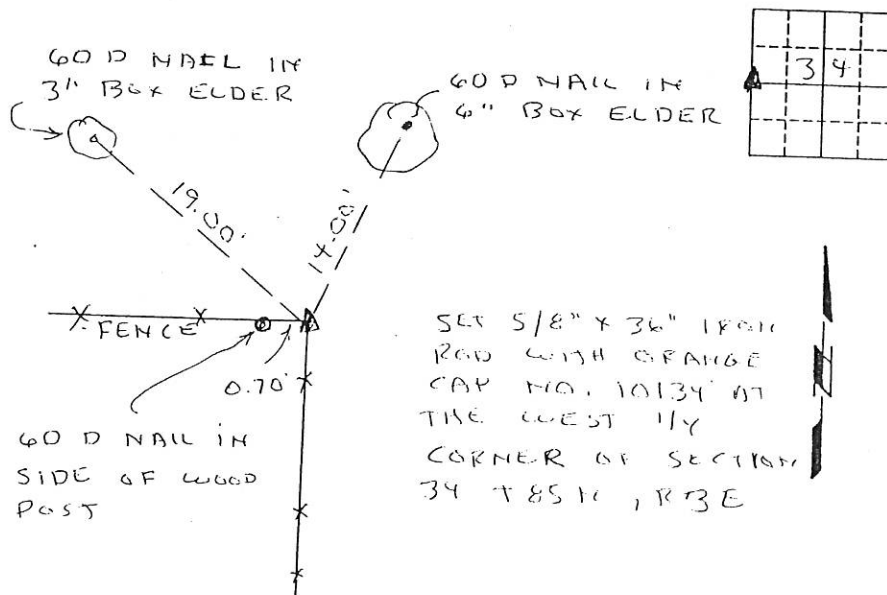 60 D NAIL IN
3" BOX ELDER
60 D NAIL IN
6" BOX ELDER
34
19.00'
14.00'
FENCE
0.70'
60 D NAIL IN
SIDE OF WOOD
POST
SET 5/8" X 36" IRON
ROD WITH ORANGE
CAP NO. 10134 AT
THE WEST 1/4
CORNER OF SECTION
34 T85N, R3E
N